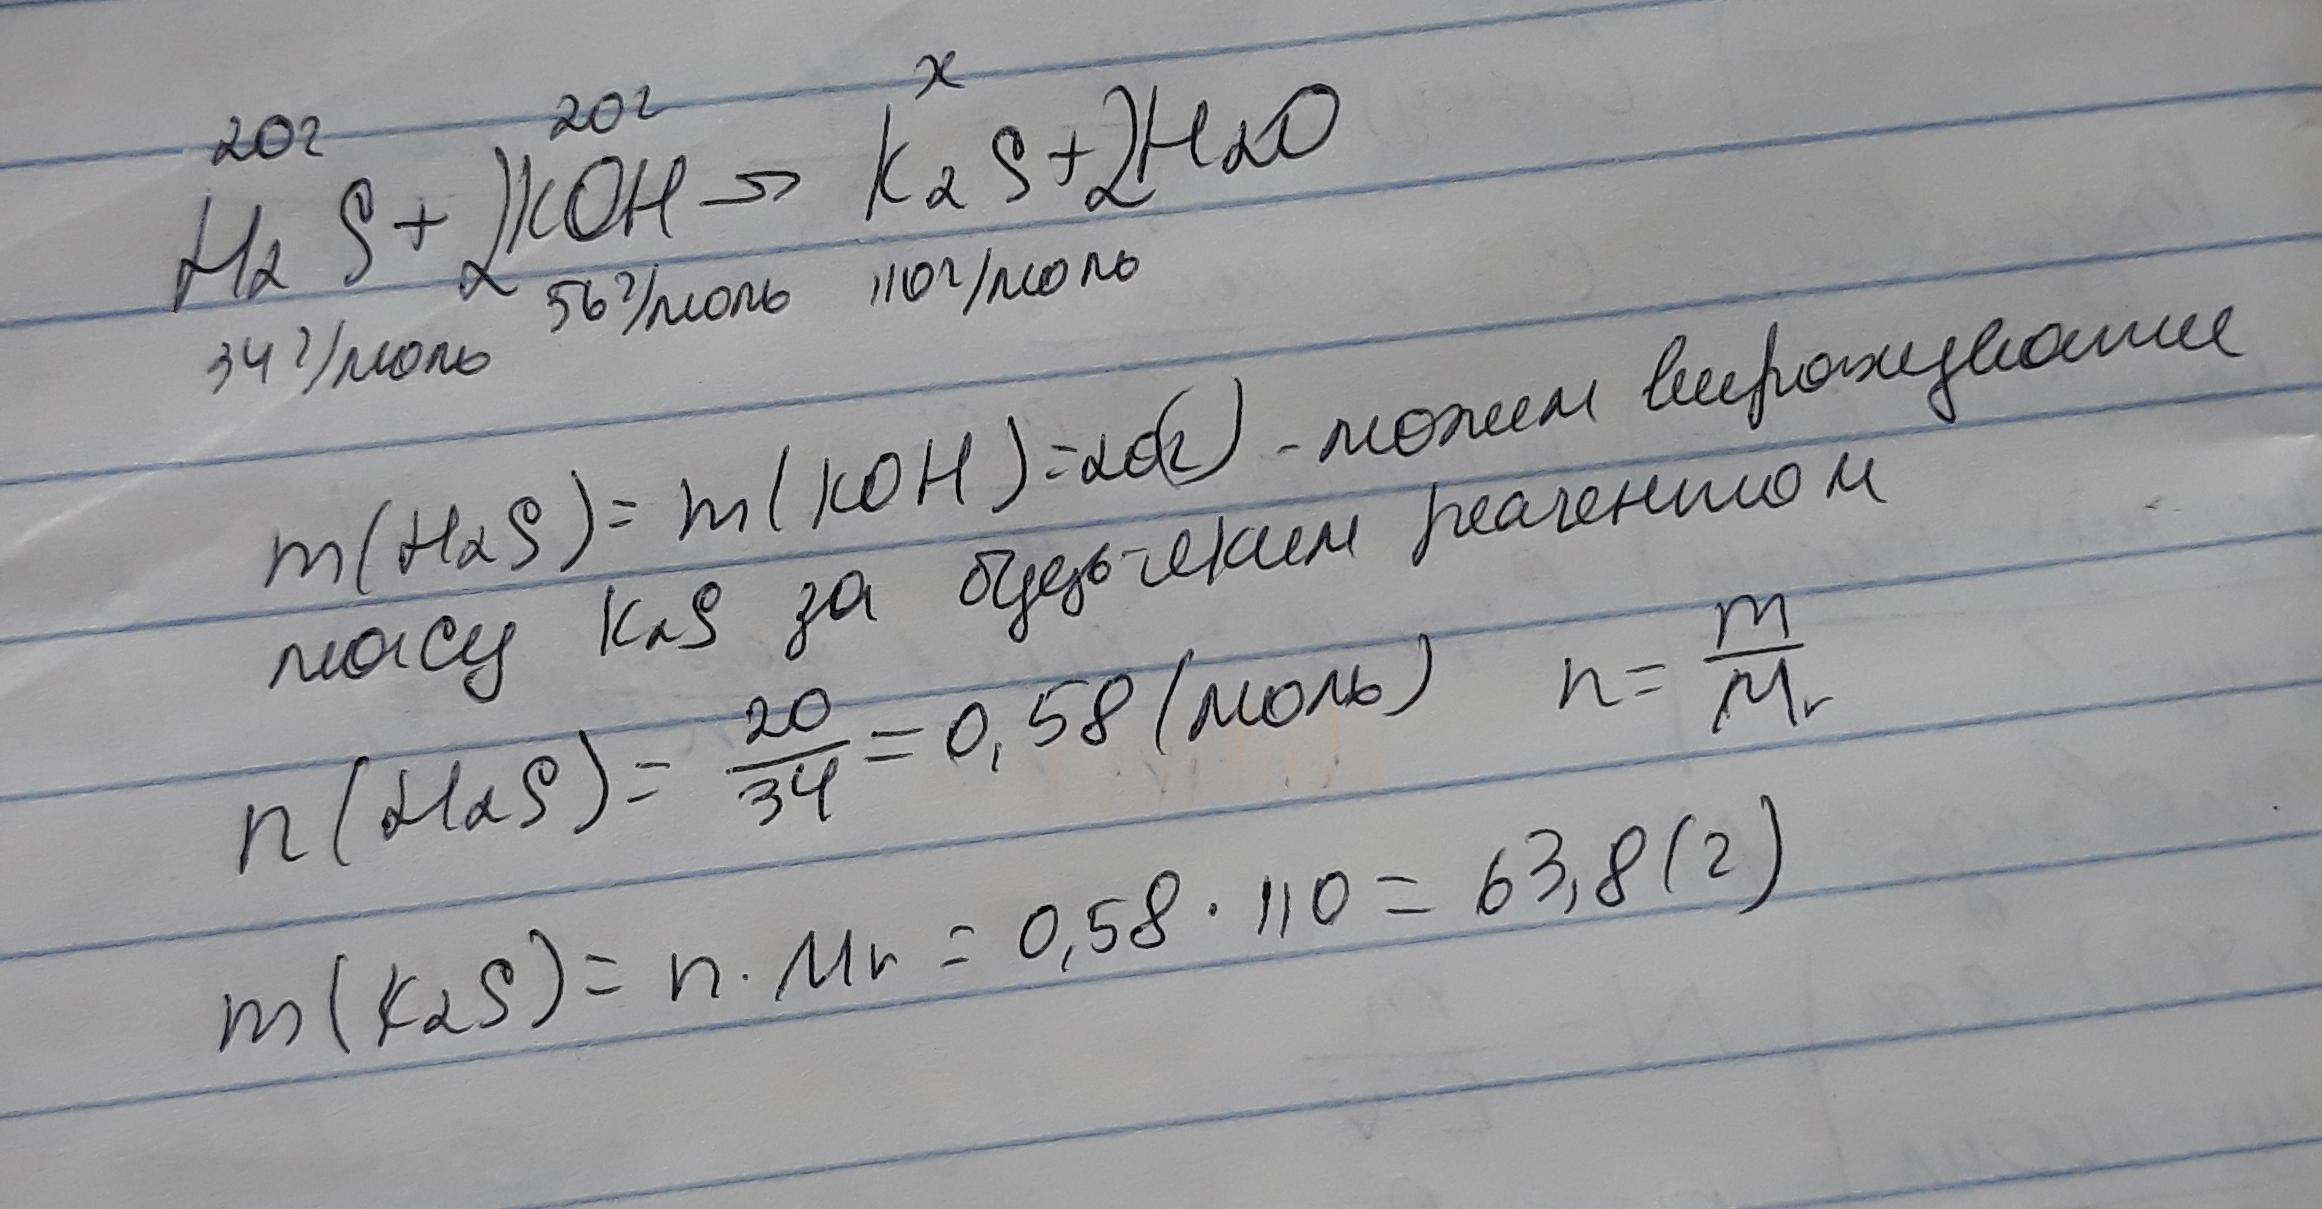 20г 20г x
H₂S + 2KOH → K₂S + 2H₂O
34г/моль 56г/моль 110г/моль
m(H₂S) = m(KOH) = 20(г) - можем вирахувати
масу K₂S за будь-яким реагентом
n(H₂S) = 20/34 = 0,58 (моль) n = m/Mr
m(K₂S) = n · Mr = 0,58 · 110 = 63,8 (г)